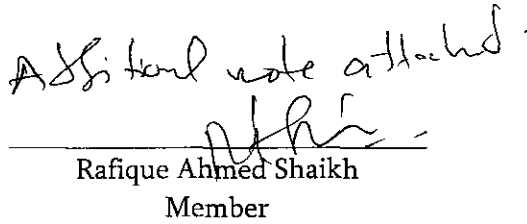 Additional note attached.
Rafique Ahmed Shaikh
Member